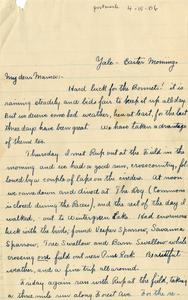 postmark 4-15-06
Yale - Easter Morning.
My dear Mamma:-
Hard luck for the Bonnets! it is
raining steadily and bids fair to keep it up all day.
But we deserve some bad weather, here at least, for the last
three days have been great. We have taken advantage
of them too.
Thursday I met Rup out at the Field in the
morning and we had a good run, crosscountry, fol
lowed by a couple of laps on the cinders. At noon
we ran down and dined at The Bay (Commons
is closed during the Recess), and the rest of the day I
walked, out to Wintergreen Lake. Had enormous
luck with the birds; found Vesper Sparrow, Savanna
Sparrow, Tree Swallow and Barn Swallow while
crossing one field out near Pine Rock. Beautiful
weather, and a fine trip all around.
Friday again ran with Rup at the field, taking
a three mile run along Forest Ave. For the